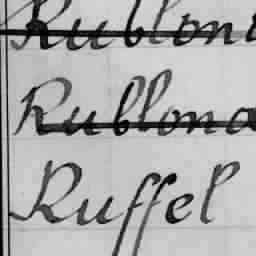 Rubloni
Rublona
Ruffel